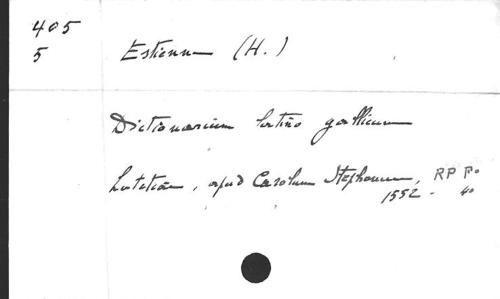 405
5 Estienne (H.)
Dictionarium latino gallicum
Lutetiae, apud Carolum Stephanum, RP Fo
1552 - 40